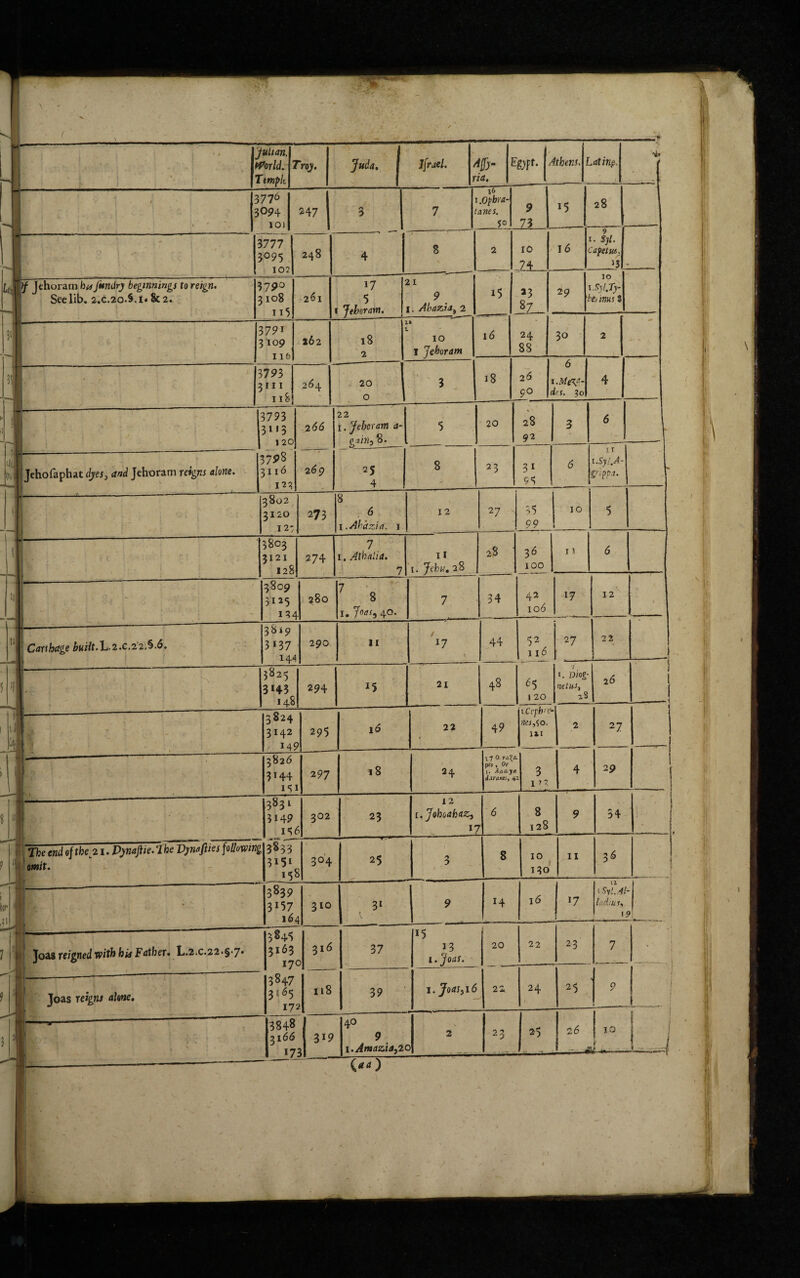 Julian. World. Temple. Troy. Juda. Israel. Assyria. Egypt. Athens. Latins.
3776 3094 101 247 3 7 16 1.Ophratanes. 50 9 73 15 28
3777 3095 102 248 4 8 2 10 74 16 9 1. Syl. Capetus. 13
Of Jehoram his sundry beginnings to reign. See lib. 2.c.20.§.1. & 2. 3790 3108 115 261 17 5 1 Jehoram. 21 9 1. Ahazia, 2 15 23 87 29 10 1.Syl.Tyberinus 8
3791 3109 116 262 18 2 10 1 Jehoram 16 24 88 30 2
3793 3111 118 264 20 0 3 18 26 90 6 1.Megades. 30 4
3793 3113 120 266 22 1. Jehoram again, 8. 5 20 28 92 3 6
Jehosaphat dyes, and Jehoram reigns alone. 3798 3116 123 269 25 4 8 23 31 95 6 11 1.Syl.Agrippa.
3802 3120 127 273 8 6 1.Ahazia. 1 12 27 35 99 10 5
3803 3121 128 274 7 1. Athalia. 7 11 1. Jehu. 28 28 36 100 11 6
3809 3125 134 280 7 8 1. Joas, 40. 7 34 42 106 17 12
Carthage built. L.2.c.22.§.6. 3819 3137 144 290 11 17 44 52 116 27 22
3825 3143 148 294 15 21 48 65 120 7 1. Diognetus, 28 26
3824 3142 149 295 16 22 49 1.Cephrenes,50. 121 2 27
3826 3144 151 297 18 24 3 4 29
3831 3149 156 302 23 12 1. Jehoahaz, 17 6 8 128 9 34
The end of the 21. Dynastie. The Dynasties following omit. 3833 3151 158 304 25 3 8 10 130 11 36
3839 3157 164 310 31 9 14 16 17 12 1 Syl. Alladius, 19
Joas reigned with his Father. L.2.c.22.§.7. 3845 3163 170 316 37 15 13 1. Joas. 20 22 23 7
Joas reigns alone. 3847 3165 172 118 39 1. Joas,16 22 24 25 9
3848 3166 173 319 40 9 1. Amazia,20 2 23 25 26 10
(aa)